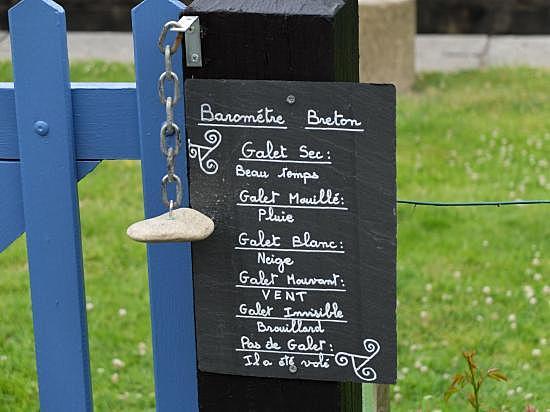 Barométre Breton
Galet Sec :
Beau temps
Galet Mouillé :
Pluie
Galet Blanc :
Neige
Galet Mouvant :
VENT
Galet Invisible
Brouillard
Pas de Galet :
Il a été volé